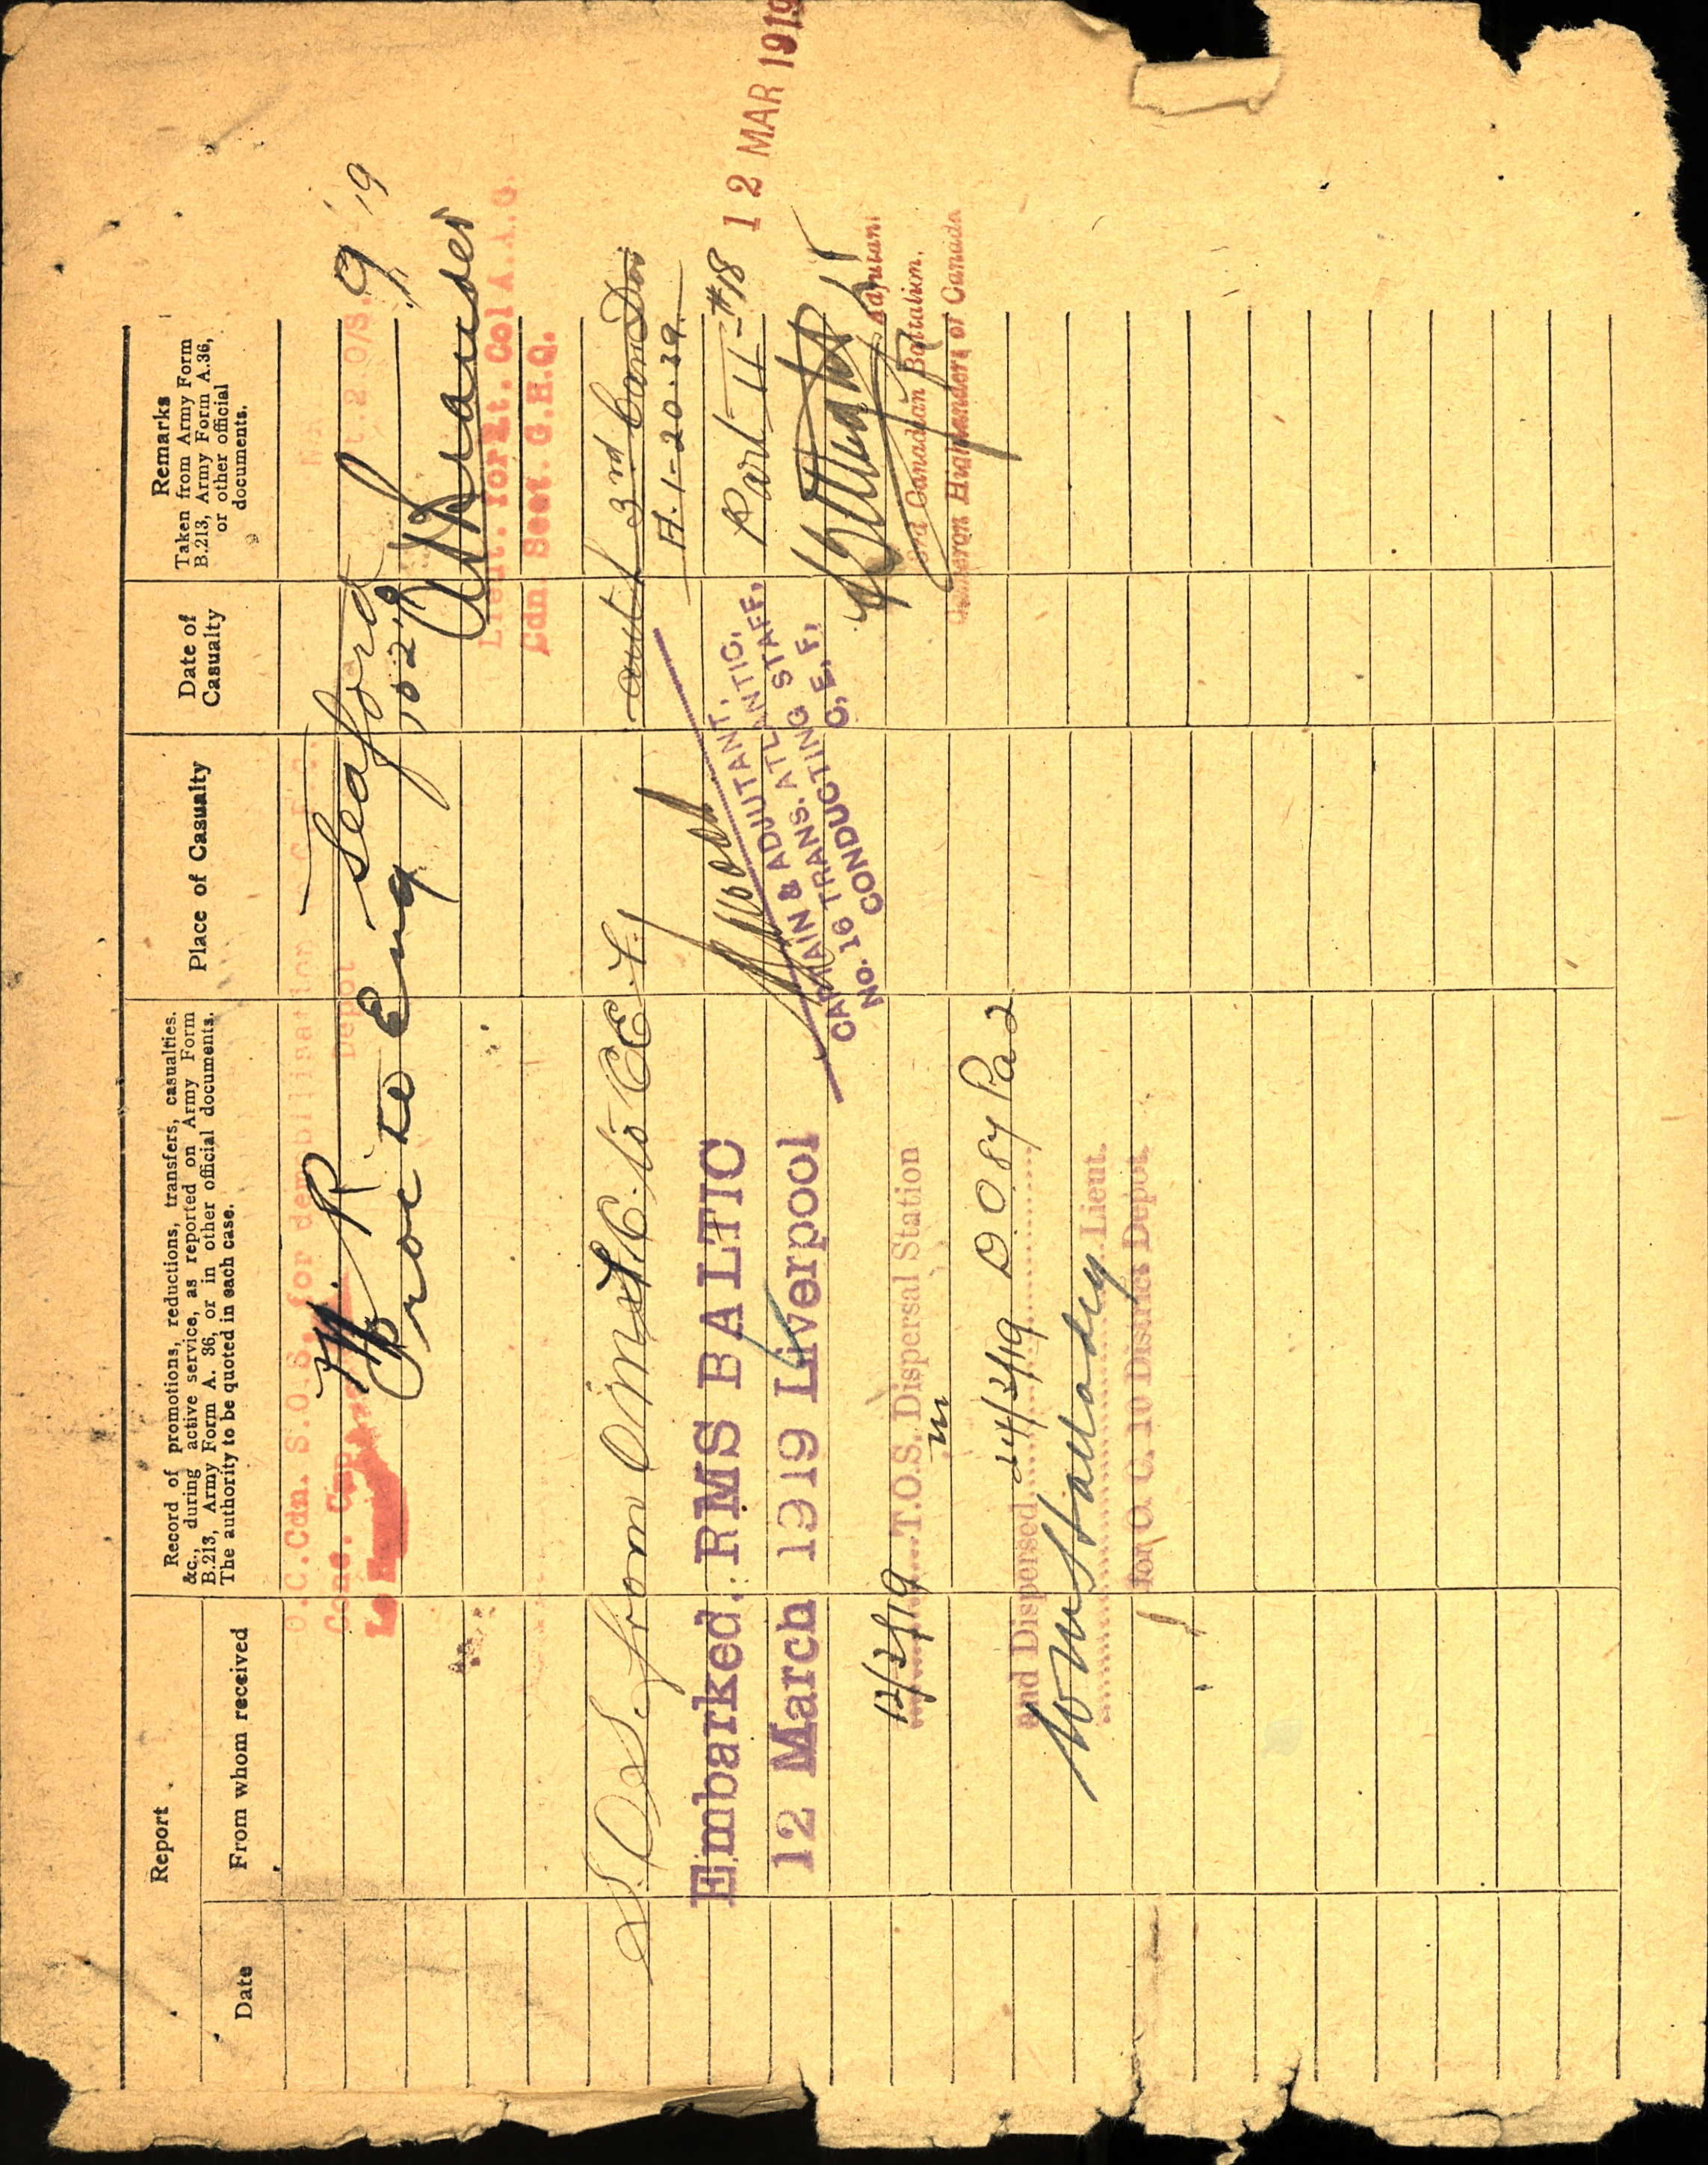 Report
Record of promotions, reductions, transfers, casualties,
&c., during active service, as reported on Army Form
B.213, Army Form A. 36, or in other official documents.
The authority to be quoted in each case.
Place of Casualty
Date of
Casualty
Remarks
Taken from Army Form
B.213, Army Form A.36,
or other official
documents.
Date
From whom received
O.C.Cdn. S.O.S. for demobilization C.E.F.
Conc. Depot
Proc to Eng Seaford
9/19
Lieut. for Lt. Col A.A.G.
Cdn. Sect. G.H.Q.
S.O.S. from to C.E.F. auth 3rd Can Div
A.1-20-39.
Embarked. RMS BALTIC
12 March 1919 Liverpool
Part II #18
12 MAR 1919
Wood
CAPTAIN & ADJUTANT,
No. 16 TRANS. ATLANTIC,
CONDUCTING STAFF,
C. E. F.
Adjutant
43rd Canadian Battalion,
Cameron Highlanders of Canada
12/3/19 T.O.S. Dispersal Station
and Dispersed 24/3/19 D.O. 87 Pa 2
Lieut.
for O. C. 10 District Depot.